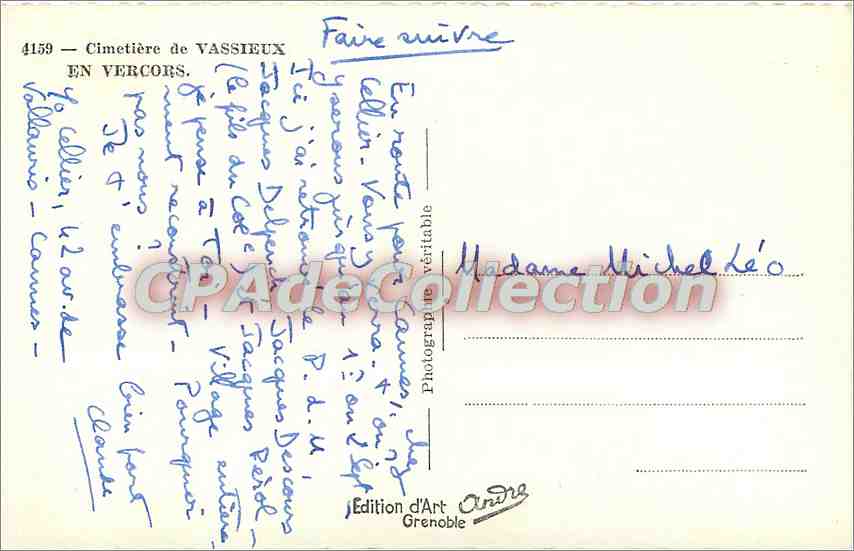 4159 — Cimetière de VASSIEUX
EN VERCORS.
Faire suivre
En route pour Cannes, chez
Cellier. Vous y sera. + on
y serons jusqu'au 1er ou 2 Sept,
Ici j'ai retrouvé le P. d. M,
Jacques Delpench, Jacques Descours
(le fils du Col e) et Jacques Pérol —
je pense à Toi — Village entière-
ment reconstruit — Pourquoi
pas nous?
Je t'embrasse bien fort
Claude
c/o Cellier, 42 av. de
Vallauris — Cannes —
Madame Michel Léo
Photographie véritable
Edition d'Art André
Grenoble
CPAdeCollection